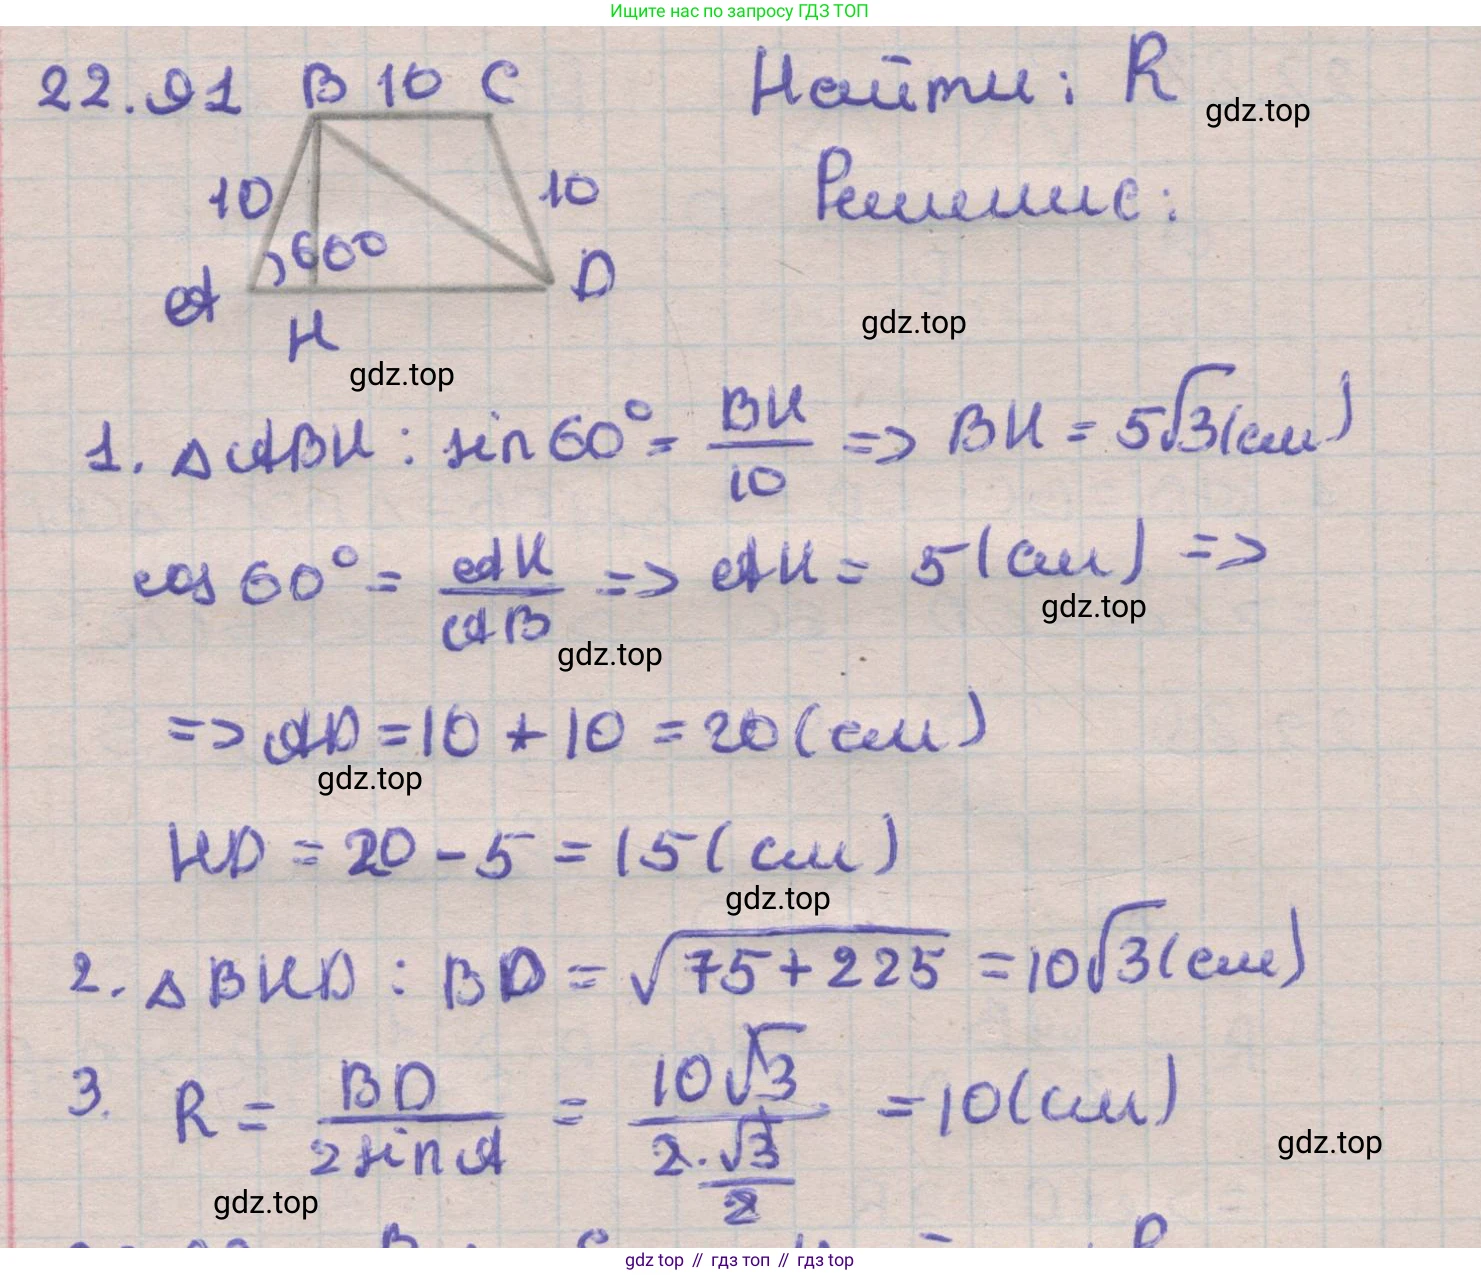 Ищите нас по запросу ГДЗ ТОП
22.21 B 10 C Найти: R
gdz.top
10 10 Решение:
60°
A D
H
gdz.top
gdz.top
1. △ABH: sin 60° = BH/10 => BH = 5√3 (см)
cos 60° = AH/AB => AH = 5 (см) =>
gdz.top
gdz.top
=> AD = 10 + 10 = 20 (см)
gdz.top
HD = 20 - 5 = 15 (см)
gdz.top
2. △BHD: BD = √75 + 225 = 10√3 (см)
3. R = BD/2 sin A = 10√3/2·√3/2 = 10 (см)
gdz.top
gdz.top
gdz top // гдз топ // gdz top